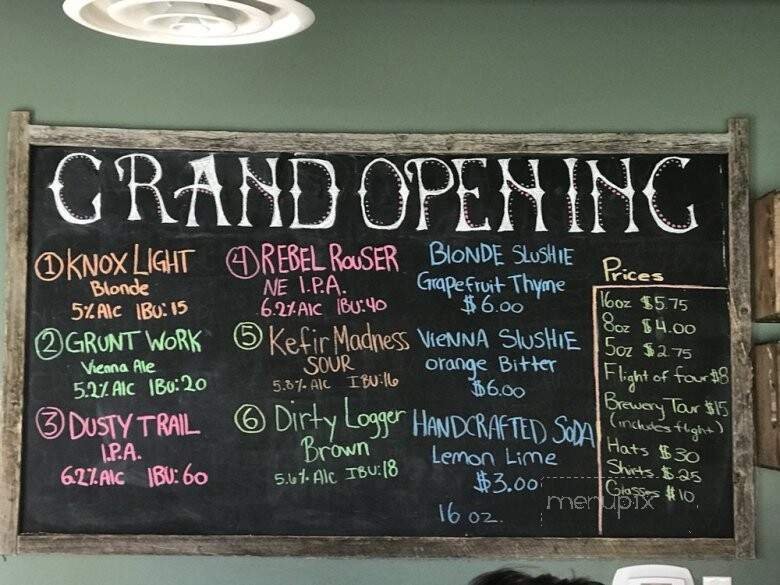 GRAND OPENING
① KNOX LIGHT
Blonde
5% Alc IBU: 15
② GRUNT WORK
Vienna Ale
5.2% Alc IBU: 20
③ DUSTY TRAIL
I.P.A.
6.2% Alc IBU: 60
④ REBEL ROUSER
NE I.P.A.
6.2% Alc IBU: 40
⑤ Kefir Madness
SOUR
5.8% Alc IBU: 16
⑥ Dirty Logger
Brown
5.6% Alc IBU: 18
BLONDE SLUSHIE
Grapefruit Thyme
$6.00
VIENNA SLUSHIE
orange Bitter
$6.00
HANDCRAFTED SODA
Lemon Lime
$3.00
16 oz.
Prices
16oz $5.75
8oz $4.00
5oz $2.75
Flight of four $8
Brewery Tour $15
(includes flight)
Hats $30
Shirts $25
Glasses $10
menupix